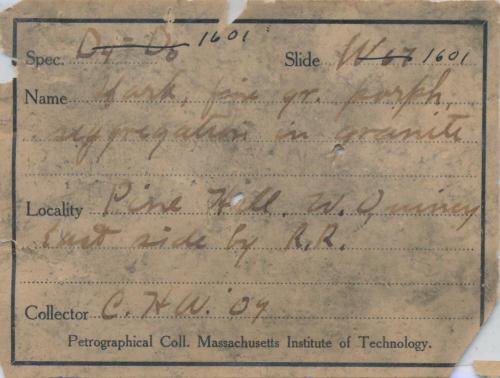 Spec. 1601 Slide W 67 1601
Name Dark, fine gr. porph.
segregation in granite
Locality Pine Hill. W. Quincy
East side by R.R.
Collector C. H. W. '07
Petrographical Coll. Massachusetts Institute of Technology.